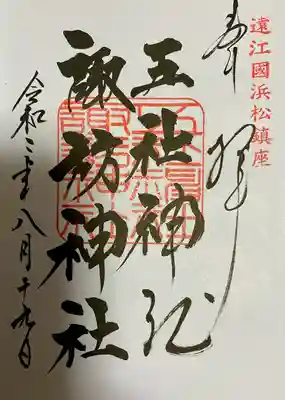 遠江國浜松鎮座
奉拝
五社神社
諏訪神社
令和二年八月十九日